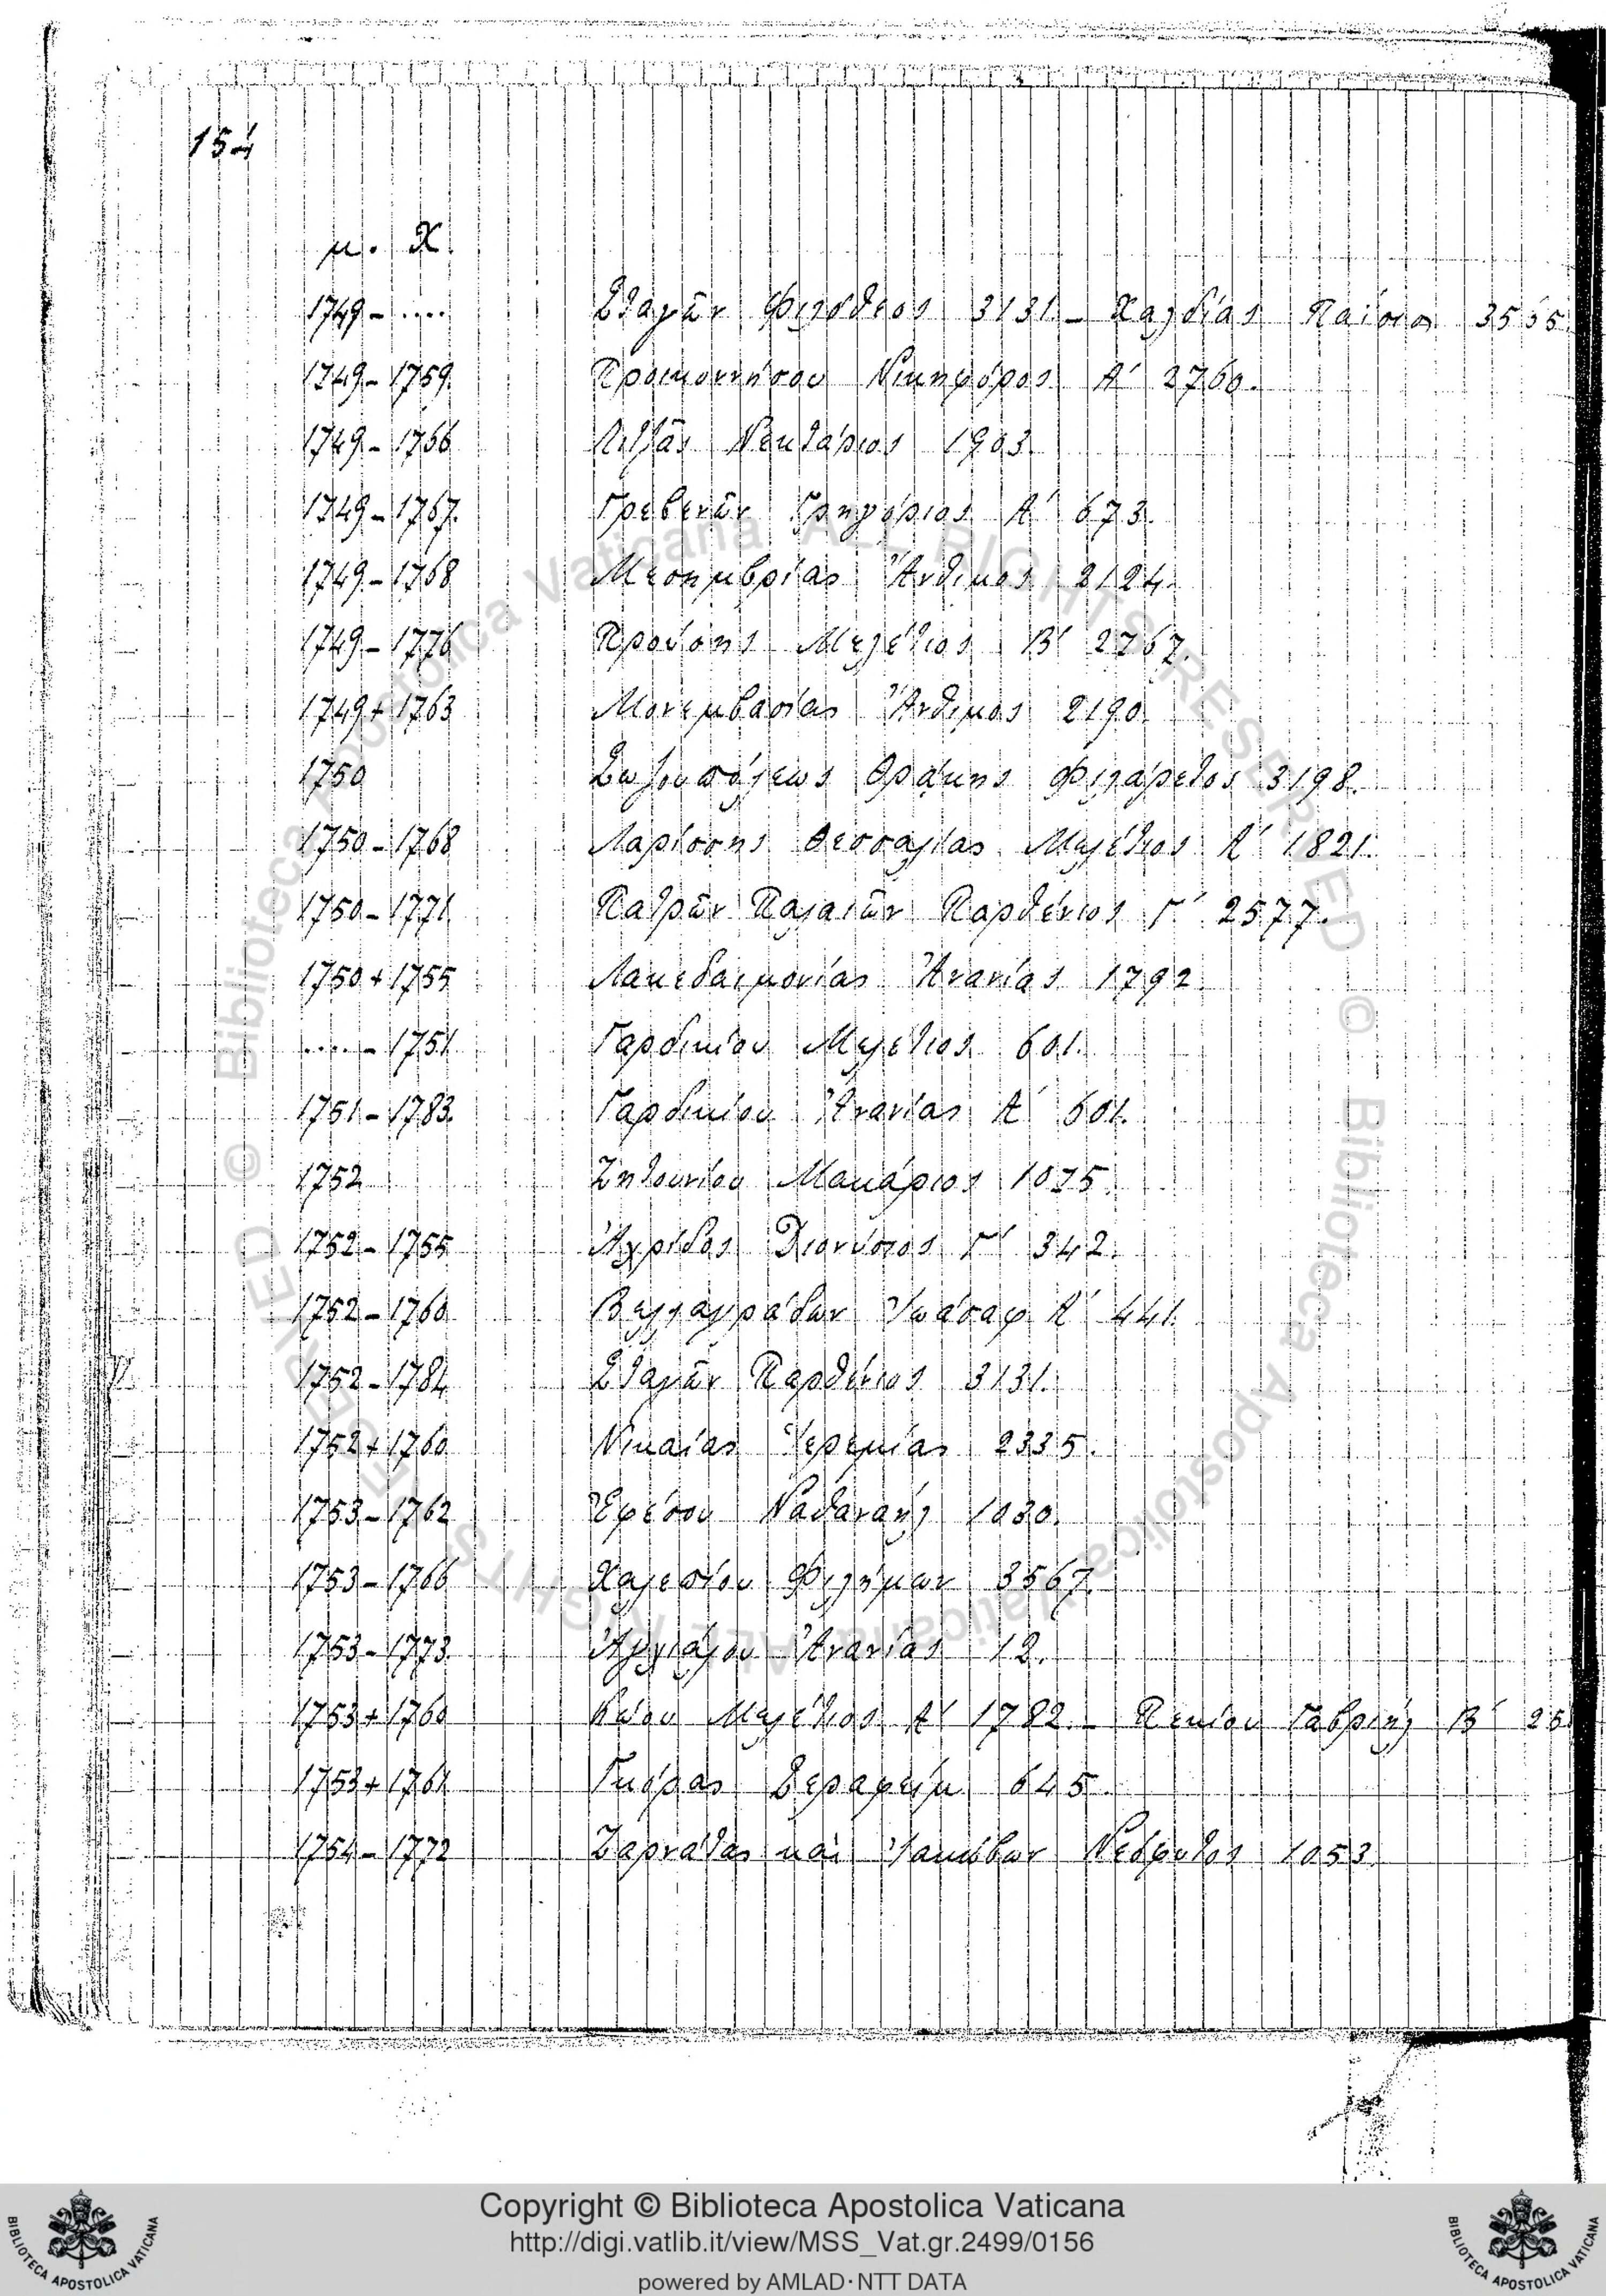 154
μ. Χ.
1749 - .... Σταγῶν Φιλόθεος 3131 - Χαλδίας Παίσιος 3555
1749 - 1759. Προικοννήσου Νικηφόρος Α' 2760.
1749 - 1756 Λιτζᾶς Νεκτάριος 1903.
1749 - 1767. Γρεβενῶν Γρηγόριος Α' 673.
1749 - 1768 Μεσημβρίας Ἄνθιμος 2124.
1749 - 1776 Προύσης Μελέτιος Β' 2767.
1749 + 1763 Μονεμβασίας Ἄνθιμος 2190.
1750 Σωζουπόλεως Θρᾴκης Φιλάρετος 3198.
1750 - 1768 Λαρίσσης Θεσσαλίας Μελέτιος Α' 1821.
1750 - 1771 Πατρῶν Παλαιῶν Παρθένιος Γ' 2577.
1750 + 1755 Λακεδαιμονίας Ἀνανίας 1792.
.... - 1751 Γαρδικίου Μελέτιος 601.
1751 - 1783. Γαρδικίου Ἀνανίας Α' 601.
1752 Ζητουνίου Μακάριος 1075.
1752 - 1755 Ἀχρίδος Διονύσιος Γ' 342.
1752 - 1760 Βελλαγράδων Ἰωάσαφ Α' 441.
1752 - 1784 Σταγῶν Παρθένιος 3131.
1752 + 1760 Νικαίας Ἱερεμίας 2335.
1753 - 1762 Ἐφέσου Ναθαναήλ 1030.
1753 - 1766 Χαλεπίου Φιλήμων 3567.
1753 - 1773. Ἀγχιάλου Ἀνανίας 12.
1753 + 1760 Κώου Μελέτιος Α' 1782 - Πεκίου Γαβριήλ Β'
1753 + 1761 Γκόρας Σεραφείμ 645.
1754 - 1772 Ζαρνάτας καὶ Νεόφυτος 1053
Copyright © Biblioteca Apostolica Vaticana
http://digi.vatlib.it/view/MSS_Vat.gr.2499/0156
powered by AMLAD·NTT DATA